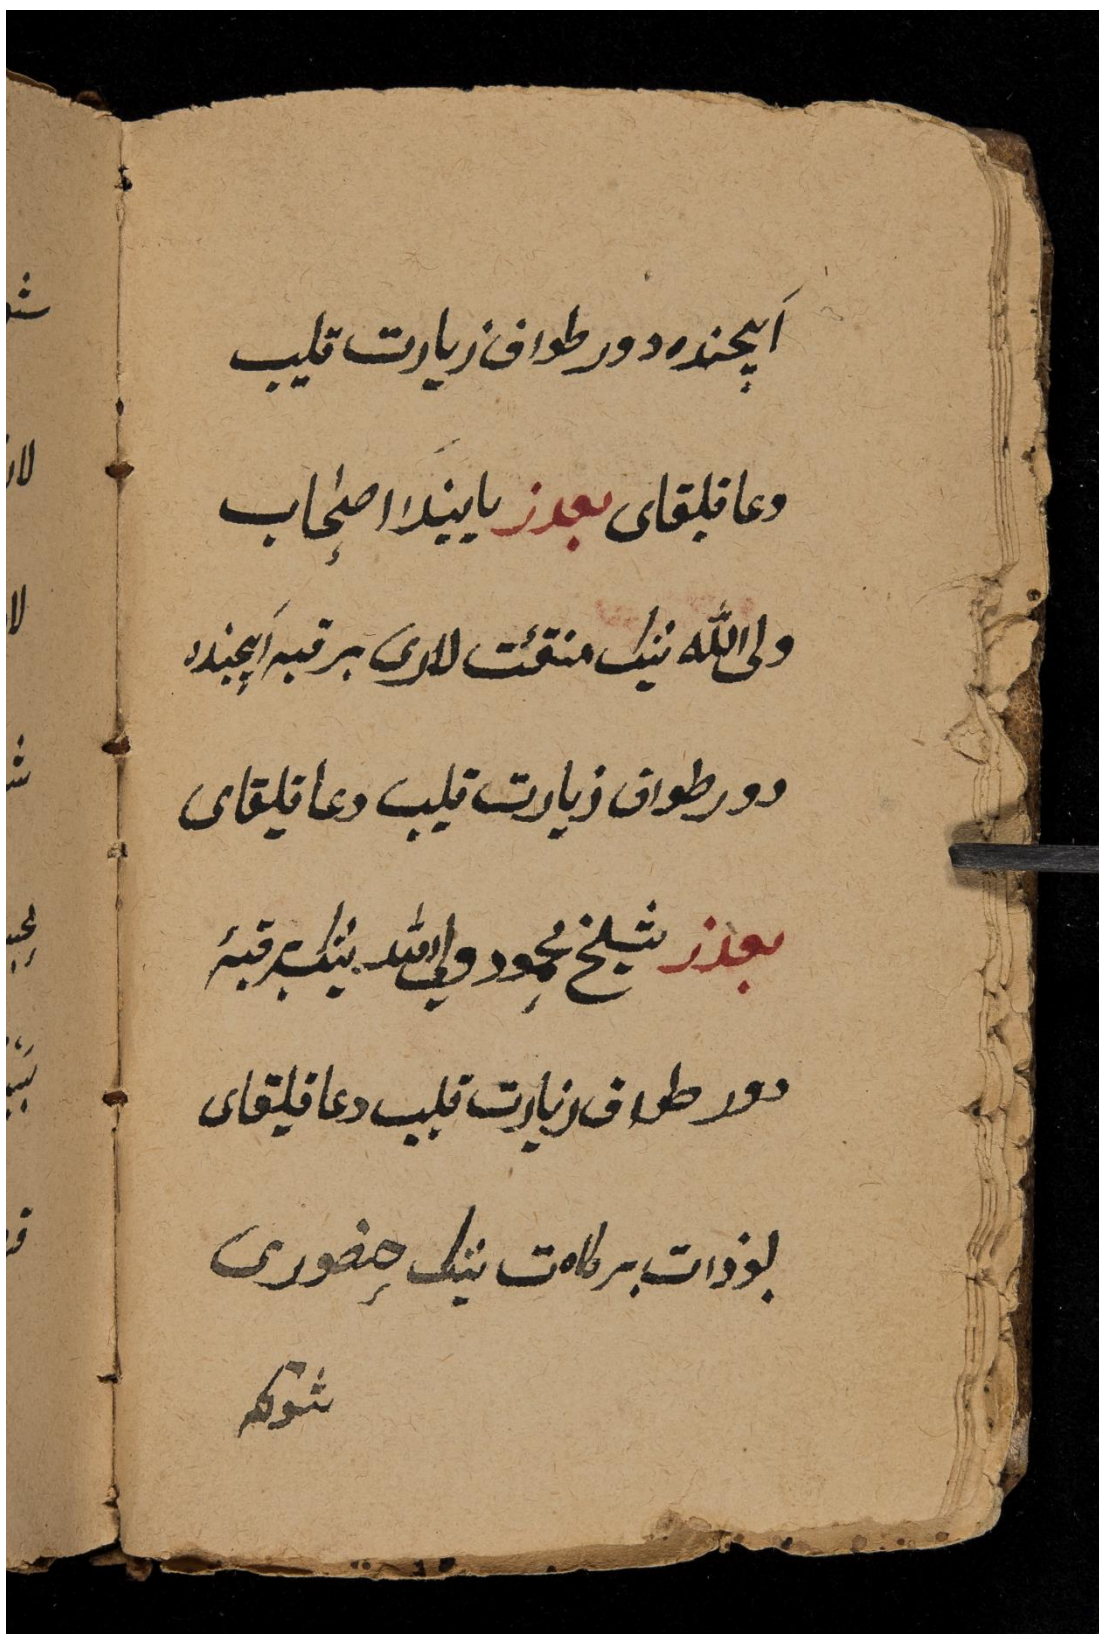 اَیچنده دور طواف زیارت قلیب
دعا قلیقای بعدز یاییندا اصحاب
ولی الله نینک منقئت لاری بر قبه اَیچنده
دور طواف زیارت قلیب دعا قلیقای
بعدز شیلخ محمود ولی الله نینک بر قبهٔ
دور طواف زیارت قلیب دعا قلیقای
بو ذات برکاه ت نینک حضوری